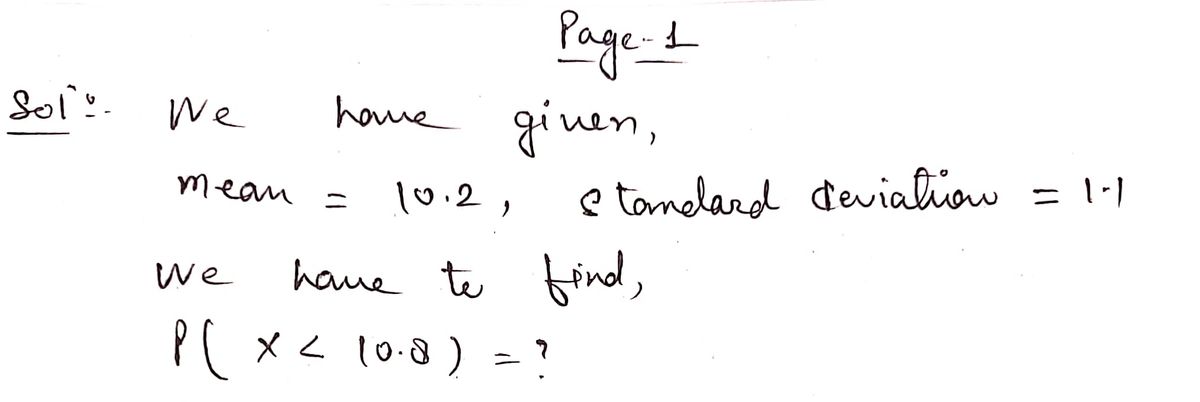 Page-1
Solⁿ:- We have given,
mean = 10.2, standard deviation = 1.1
We have to find,
P( x < 10.8 ) = ?